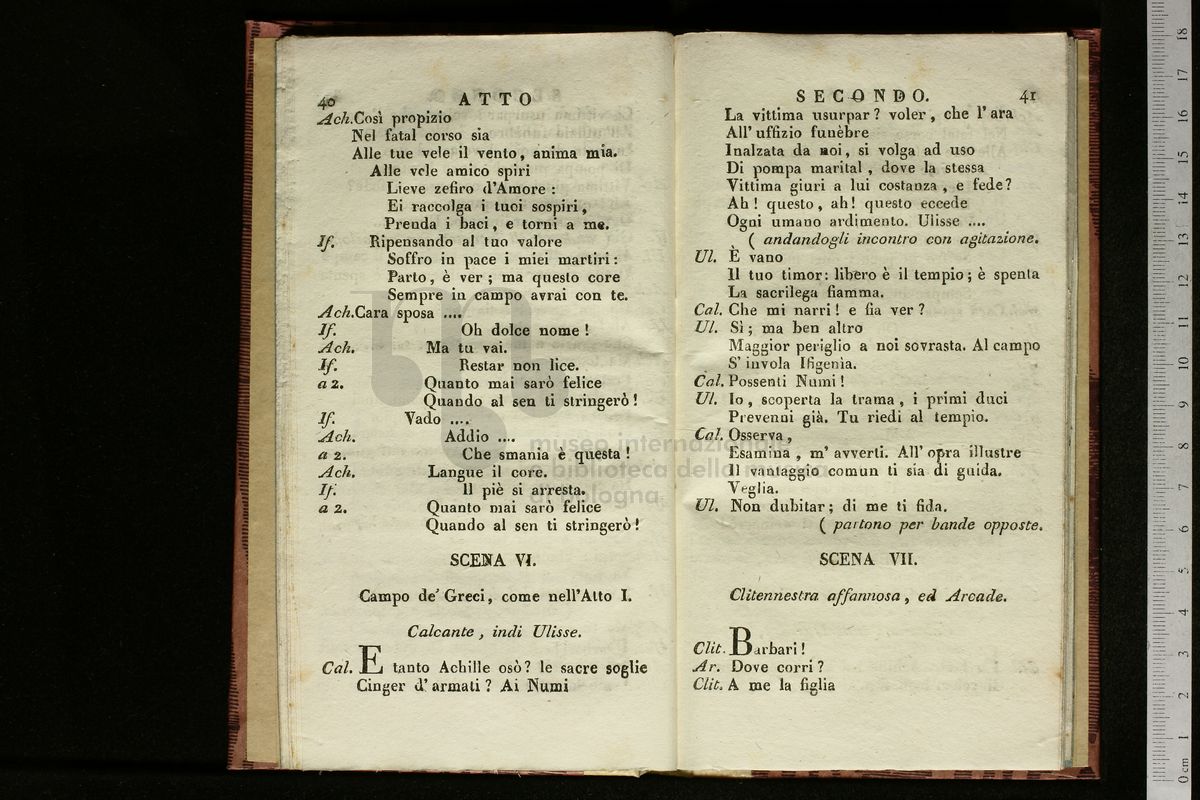 40 ATTO
Ach. Così propizio
Nel fatal corso sia
Alle tue vele il vento, anima mia.
Alle vele amico spiri
Lieve zefiro d'Amore :
Ei raccolga i tuoi sospiri,
Prenda i baci, e torni a me.
If. Ripensando al tuo valore
Soffro in pace i miei martiri :
Parto, è ver ; ma questo core
Sempre in campo avrai con te.
Ach. Cara sposa ....
If. Oh dolce nome !
Ach. Ma tu vai.
If. Restar non lice.
a 2. Quanto mai sarò felice
Quando al sen ti stringerò !
If. Vado ....
Ach. Addio ....
a 2. Che smania è questa !
Ach. Langue il core.
If. Il piè si arresta.
a 2. Quanto mai sarò felice
Quando al sen ti stringerò !
SCENA VI.
Campo de' Greci, come nell'Atto I.
Calcante, indi Ulisse.
Cal. E tanto Achille osò? le sacre soglie
Cinger d'armati ? Ai Numi
SECONDO. 41
La vittima usurpar ? voler, che l'ara
All'uffizio funèbre
Inalzata da noi, si volga ad uso
Di pompa marital, dove la stessa
Vittima giuri a lui costanza, e fede?
Ah ! questo, ah! questo eccede
Ogni umano ardimento. Ulisse ....
( andandogli incontro con agitazione.
Ul. È vano
Il tuo timor: libero è il tempio ; è spenta
La sacrilega fiamma.
Cal. Che mi narri ! e fia ver ?
Ul. Sì ; ma ben altro
Maggior periglio a noi sovrasta. Al campo
S'invola Ifigenia.
Cal. Possenti Numi !
Ul. Io, scoperta la trama, i primi duci
Prevenni già. Tu riedi al tempio.
Cal. Osserva,
Esamina, m'avverti. All'opra illustre
Il vantaggio comun ti sia di guida.
Veglia.
Ul. Non dubitar ; di me ti fida.
( partono per bande opposte.
SCENA VII.
Clitennestra affannosa, ed Arcade.
Clit. Barbari !
Ar. Dove corri ?
Clit. A me la figlia
museo internazionale
biblioteca della musica
di bologna
0 cm 1 2 3 4 5 6 7 8 9 10 11 12 13 14 15 16 17 18